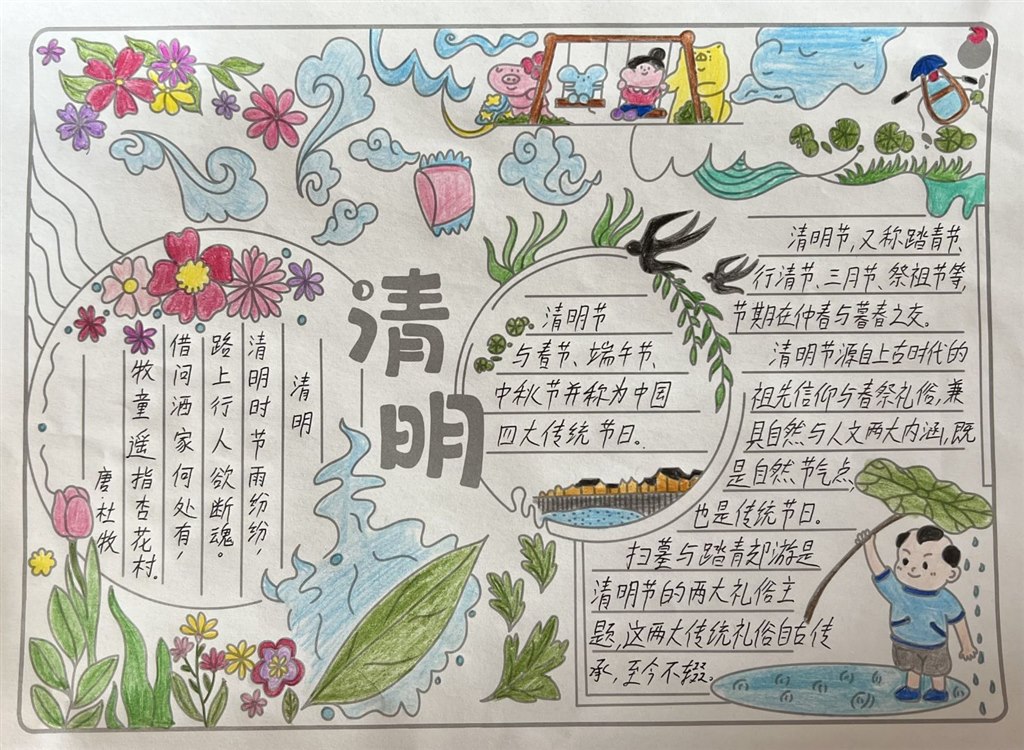 清明
清明
清明时节雨纷纷，
路上行人欲断魂。
借问酒家何处有，
牧童遥指杏花村.
唐.杜牧
清明节
与春节、端午节、
中秋节并称为中国
四大传统节日.
清明节,又称踏青节、
行清节、三月节、祭祖节等,
节期在仲春与暮春之交。
清明节源自上古时代的
祖先信仰与春祭礼俗,兼
具自然与人文两大内涵,既
是自然节气点,
也是传统节日。
扫墓与踏青郊游是
清明节的两大礼俗主
题,这两大传统礼俗自古传
承,至今不辍。